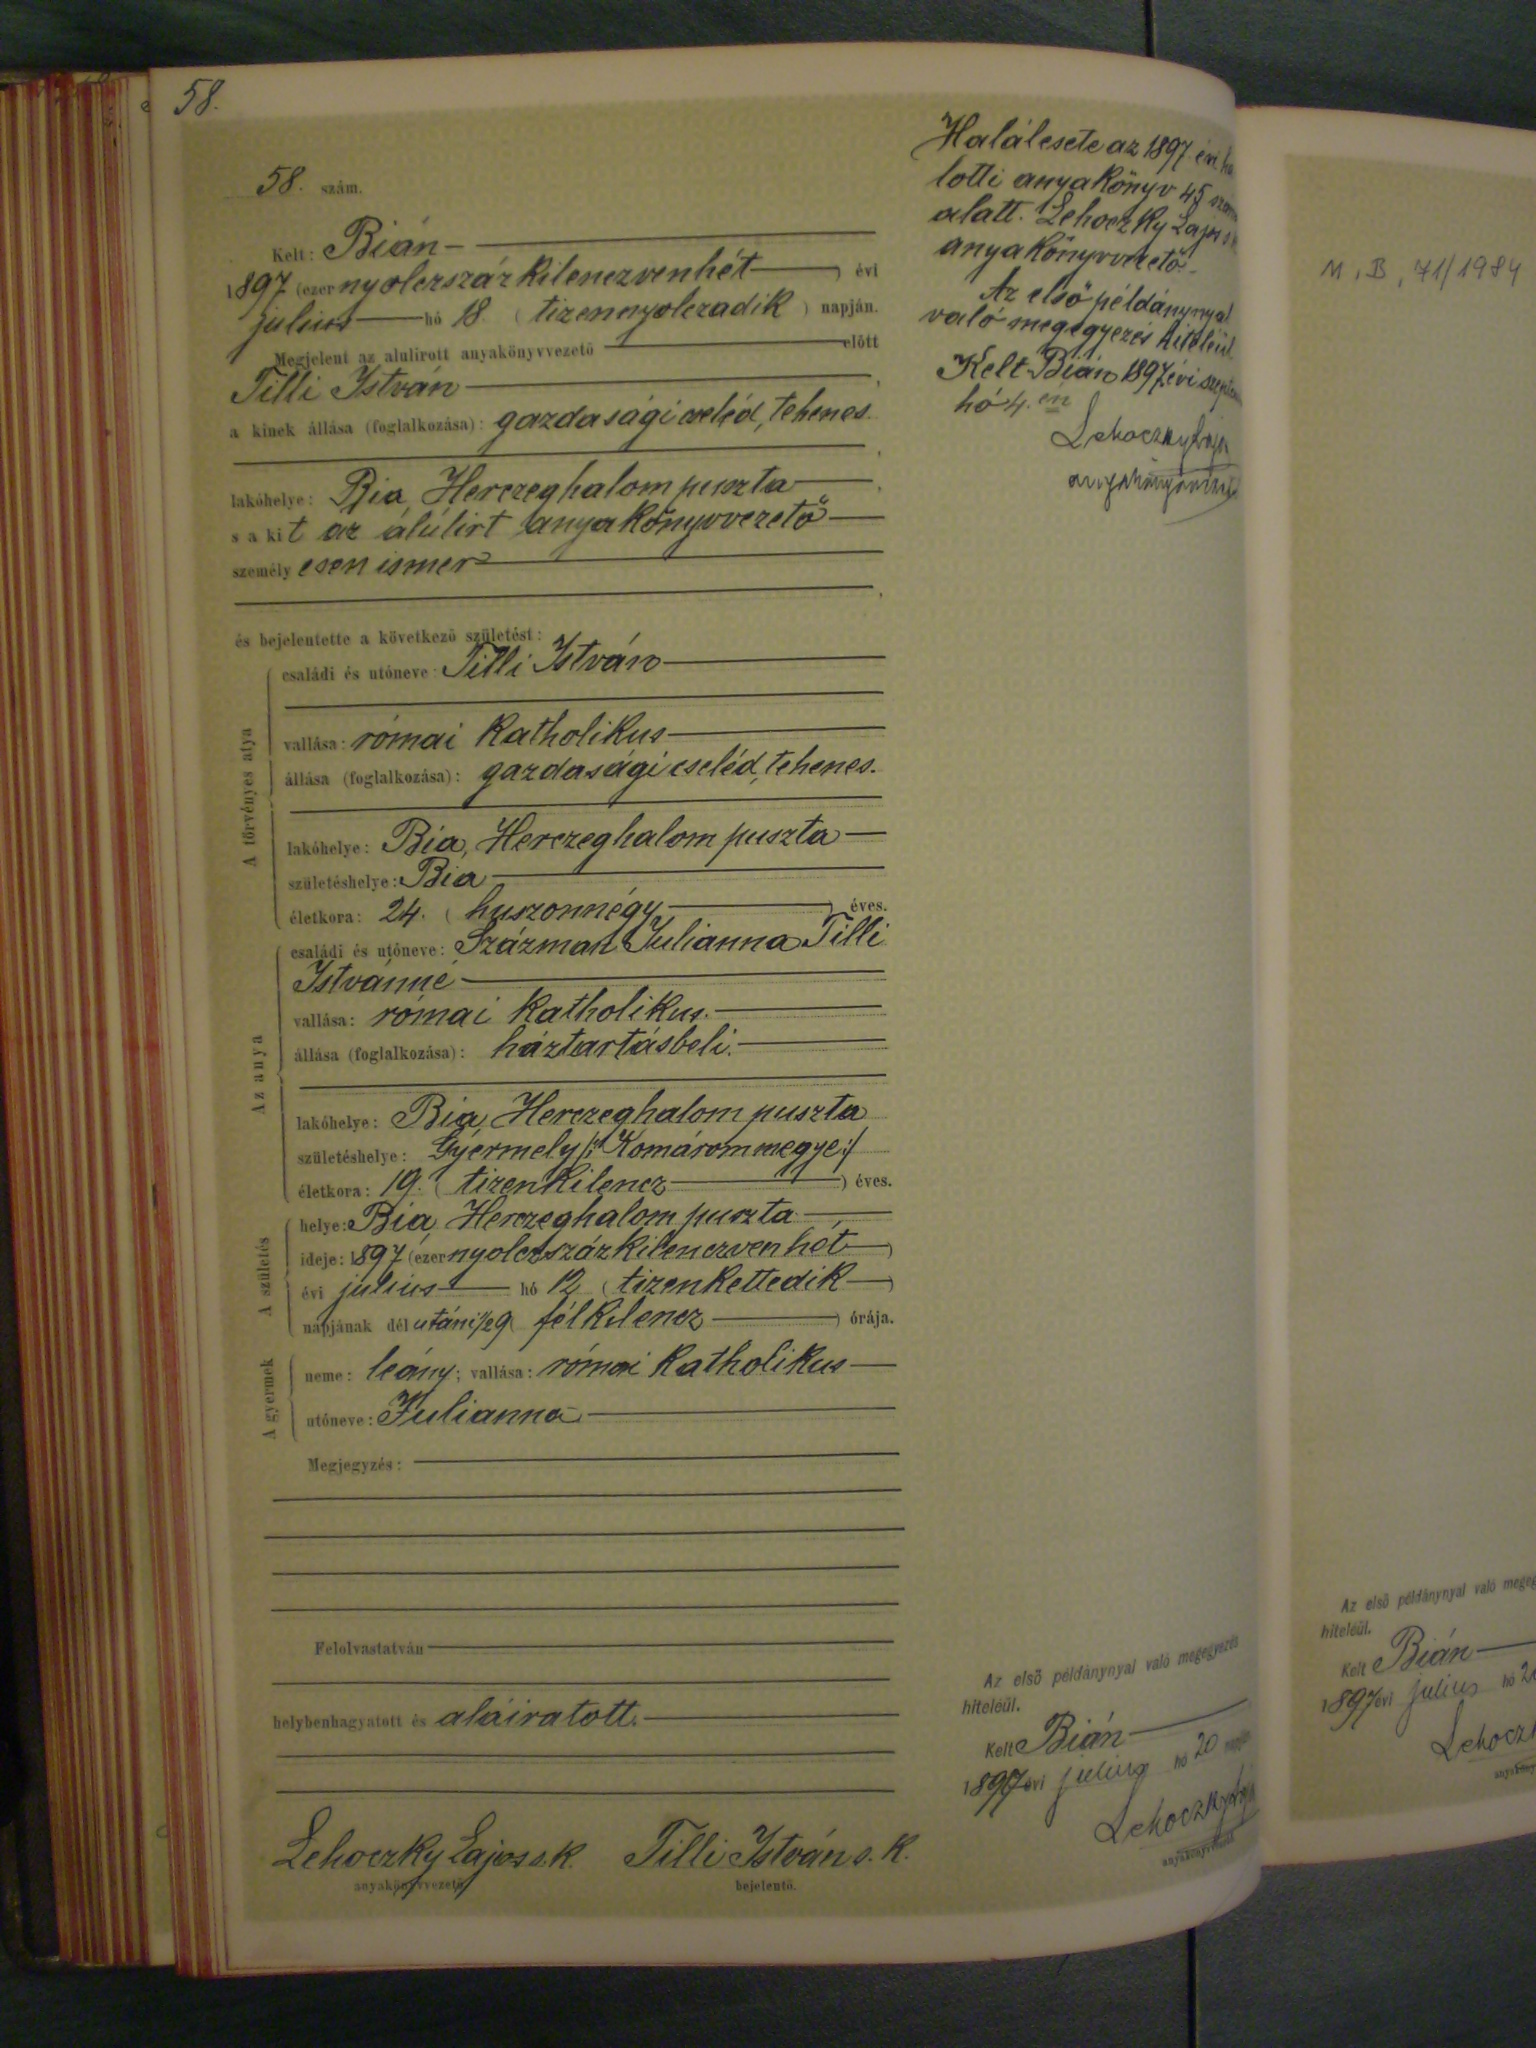 58.
58. szám.
Kelt: Bián
1897 (ezer nyolczszázkilenczvenhét) évi
julius hó 18. (tizennyolczadik) napján.
Megjelent az alulirott anyakönyvvezető előtt
Tilli István,
a kinek állása (foglalkozása): gazdasági cseléd, tehenes.
lakóhelye: Bia, Herczeghalom puszta,
s a kit az alúlirt anyakönyvvezető
személyesen ismer
és bejelentette a következő születést:
A törvényes atya
családi és utóneve: Tilli István
vallása: római katholikus
állása (foglalkozása): gazdasági cseléd, tehenes.
lakóhelye: Bia, Herczeghalom puszta
születéshelye: Bia
életkora: 24. (huszonnégy) éves.
Az anya
családi és utóneve: Százman Julianna Tilli
Istvánné
vallása: római katholikus.
állása (foglalkozása): háztartásbeli.
lakóhelye: Bia, Herczeghalom puszta
születéshelye: Gyermely /: Komárommegye :/
életkora: 19. (tizenkilencz) éves.
A születés
helye: Bia, Herczeghalom puszta
ideje: 1897 (ezer nyolczszázkilenczvenhét)
évi julius hó 12 (tizenkettedik)
napjának délutáni 1/2 9 (félkilencz) órája.
A gyermek
neme: leány; vallása: római katholikus
utóneve: Julianna
Megjegyzés:
Felolvastatván
helybenhagyatott és aláiratott.
Lehoczky Lajos s. k. Tilli István s. k.
anyakönyvvezető bejelentő.
Halálesete az 1897 évi ha
lotti anyakönyv 45 szám
alatt. Lehoczky Lajos s. k.
anyakönyvvezető
Az első példánynyal
való megegyezés hiteléül.
Kelt Bián 1897. évi
hó 4. én
Lehoczky Lajos
anyakönyvvezető
Az első példánynyal való megegyezés
hiteléül.
Kelt Bián
1897 évi julius hó 20 napján
Lehoczky Lajos
anyakönyvvezető
M. B. 71/1984
Az első példánynyal való
hiteléül.
Kelt Bián
1897 évi julius hó